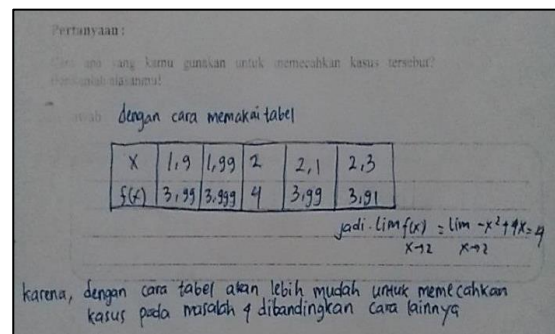 Pertanyaan :
Cara apa yang kamu gunakan untuk memecahkan kasus tersebut?
alasanmu!
dengan cara memakai tabel
X 1,9 1,99 2 2,1 2,3
f(x) 3,99 3,999 4 3,99 3,91
jadi. lim f(x) = lim -x²+4x=4
x→2 x→2
karena, dengan cara tabel akan lebih mudah untuk memecahkan
kasus pada masalah 4 dibandingkan cara lainnya